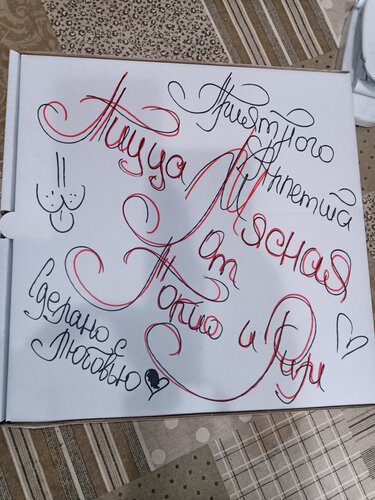 Приятного
Аппетита
Пицца
Мясная
от
Токио и Рири
Сделано с
любовью